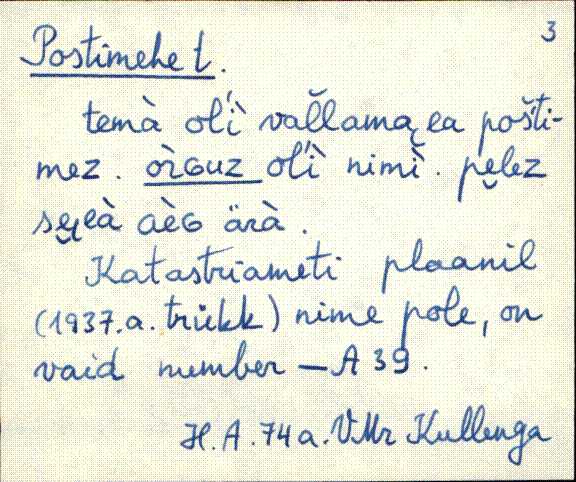 3
Postimehe t.
temà ol'ì vaĺlama̬ ea pošti-
mez. òrGuz ol'ì nimì. pe̬lez
se̬l̬eà àèG ärà.
Katastriameti plaanil
(1937.a. trükk) nime pole, on
vaid number — A 39.
H.A. 74 a. V.Mr Kullenga